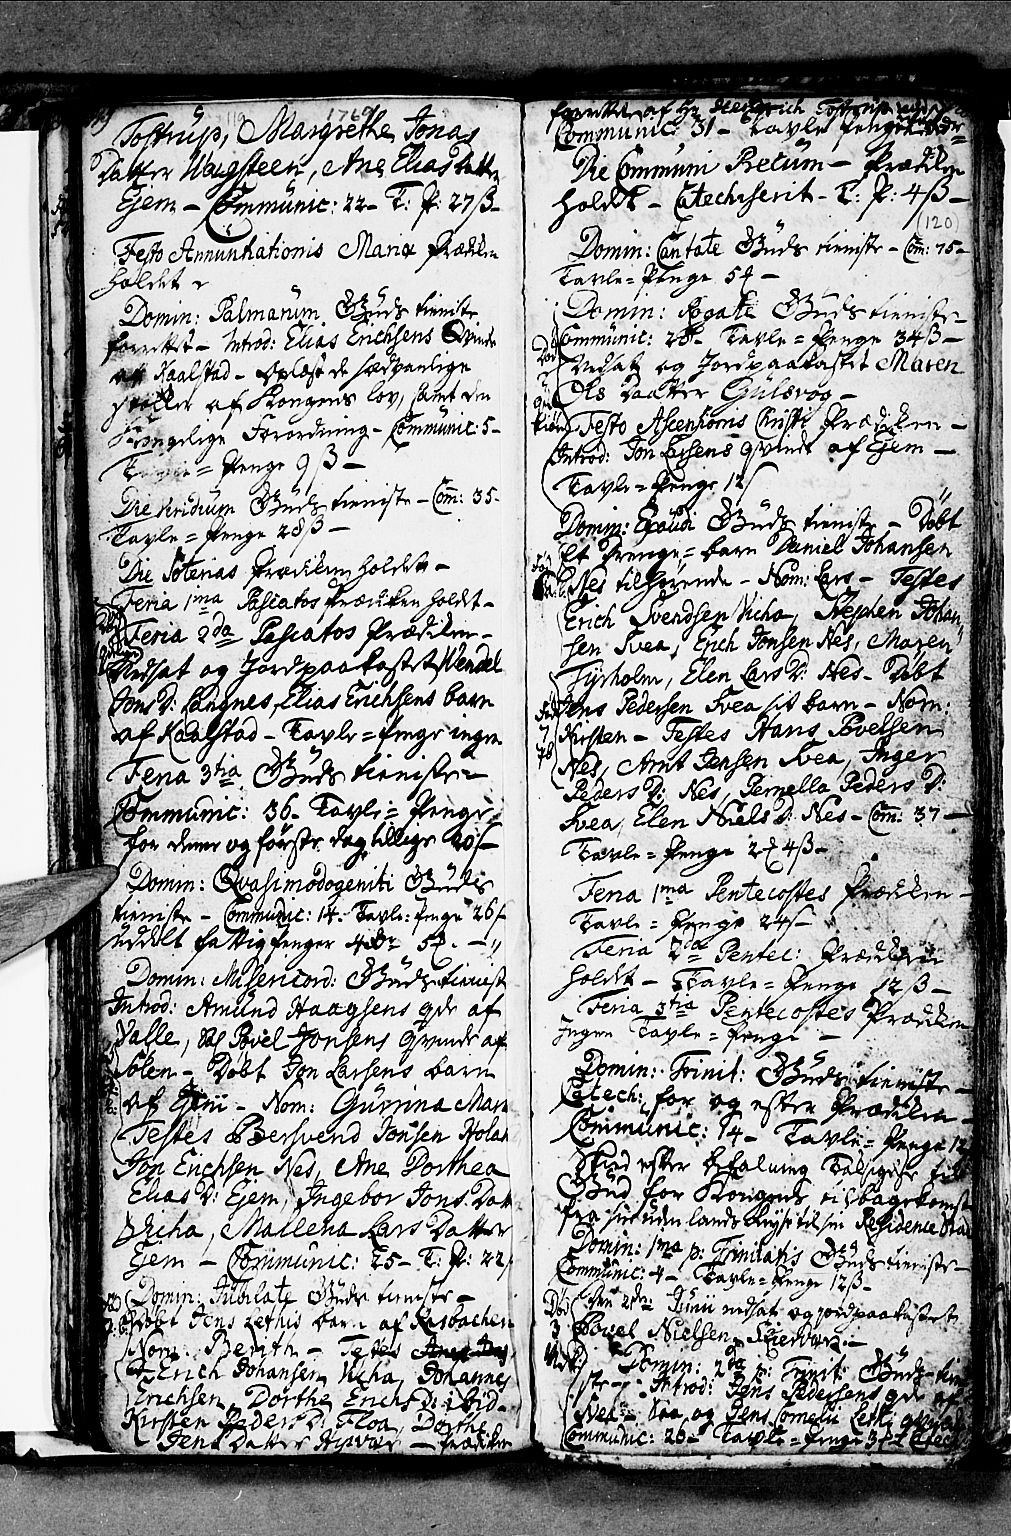 119
1769
Tostrup, Margrethe Jonas
Datter Waagsteen, Ane Elias Datter
Ejem – Communic: 22 – T: P: 27 ß –
Festo Annunciationis Mariæ Prædiken
holdet
Domin: Palmarum Guds tieniste
forrettet – Introd: Elias Erichsens Qvinde
af Kaalstad – Oplæst de sædvanlige
stÿkker af Kongens lov, samt den
Kongelige Forordning – Communic: 5 –
Tavle = Penge 9 ß –
Die Viridium Guds tieniste – Com: 35 –
Tavle = Penge 28 ß –
Die Soterias Prædiken holdet –
Feria 1ma Pascatos Prædiken holdt –
Feria 2da Pascatos Prædiken –
Nedsat og Jordpaakastet Wendel
Jons D: Langnes, Elias Erichsens barn
af Kaalstad – Tavle = Penge ingen
Feria 3tia Guds tieniste –
Communic: 36 – Tavle = Penge
for denne og første dag tillige
Domin: Qvasimodogeniti Guds
tieniste – Communic: 14 – Tavle = Penge 26 ß
uddelt fattigpenger
Domin: Misericord: Guds tienist
Introd: Amund Haagsens qde af
Valle, og Povel Jonsens Qvinde af
Solen – Døbt Jon Larsens barn
af Ejem – Nom: Gurrina Mar
Testes Bersvend Jonsen Holan
Jon Erichsen Nes, Ane Dorthea
Elias D: Ejem, Ingebor Jons Dat
Vicha, Mallena Lars Datter
Ejem – Communic: 25 – T: P: 22 ß
Domin: Jubilate Guds tieniste –
Døbt Jens Lethis barn af Risbachen
Nom: Berith – Testes
Erich Johansen Vicha, Johannes
Erichsen, Dorthe Erichs D: ibid –
Kirsten Peders D: Floa, Dorthe
Jens Datter – Prædiken
forrettet af Hr: Tostrup
Communic: 31 – Tavle penge
Die Communi Precum – Prædiken
holdt – Catechiserit – T: P: 4 ß –
(120)
Domin: Cantate Guds tieniste – Com: 75 –
Tavle = Penge 54 –
Domin: Rogate Guds tieniste –
Communic: 28 – Tavle = Penge 34 ß –
Nedsat og Jordpaakastet Maren
Ols Daatter Gulsvog –
Festo Ascensionis Christi Prædiken –
Introd: Jon Larsens qvinde af Ejem –
Tavle = Penge 12 ß
Domin: Exaudi Guds tieniste – Døbt
Et Drenge = barn Daniel Johansen
Nes tilhørende – Nom: Lars – Testes
Erich Svendsen Vicha, Stephen Johan
sen Svea, Erich Jonsen Nes, Maren
Tyrholm, Elen Lars D: Nes – Døbt
Jens Pedersen Svea sit barn – Nom:
Kirsten – Testes Hans Povelsen
Nes, Arnt Jensen Svea, Inger
Peders D: Nes, Pernella Peders D:
Svea, Elen Niels D: Nes – Com: 37 –
Tavle = Penge 2 4 ß –
Feria 1ma Pentecostes Prædiken –
Tavle = Penge 24 ß –
Feria 2da Pentec: Prædiken
holdt – Tavle = Penge 12 ß –
Feria 3tia Pentecostes Prædiken
Ingen Tavle = Penge –
Domin: Trinit: Guds tieniste –
Catech: for og efter Prædiken –
Communic: 14 – Tavle = Penge 12
efter befalning Taksigelse til
Gud for Kongens tilbagekomst
fra sin udenlands Reyse til sin Residence Stad
Domin: 1ma p: Trinitatis Guds tieniste –
Communic: 4 – Tavle = Penge 12 ß –
Junii nedsat og jordpaakastet
Povel Nielsen
Domin: 2da p: Trinit: Guds tien
Introd: Jens Pedersens qde af
Nes – og Jens Cornelii qvinde
Communic: 20 – Tavle = Penge